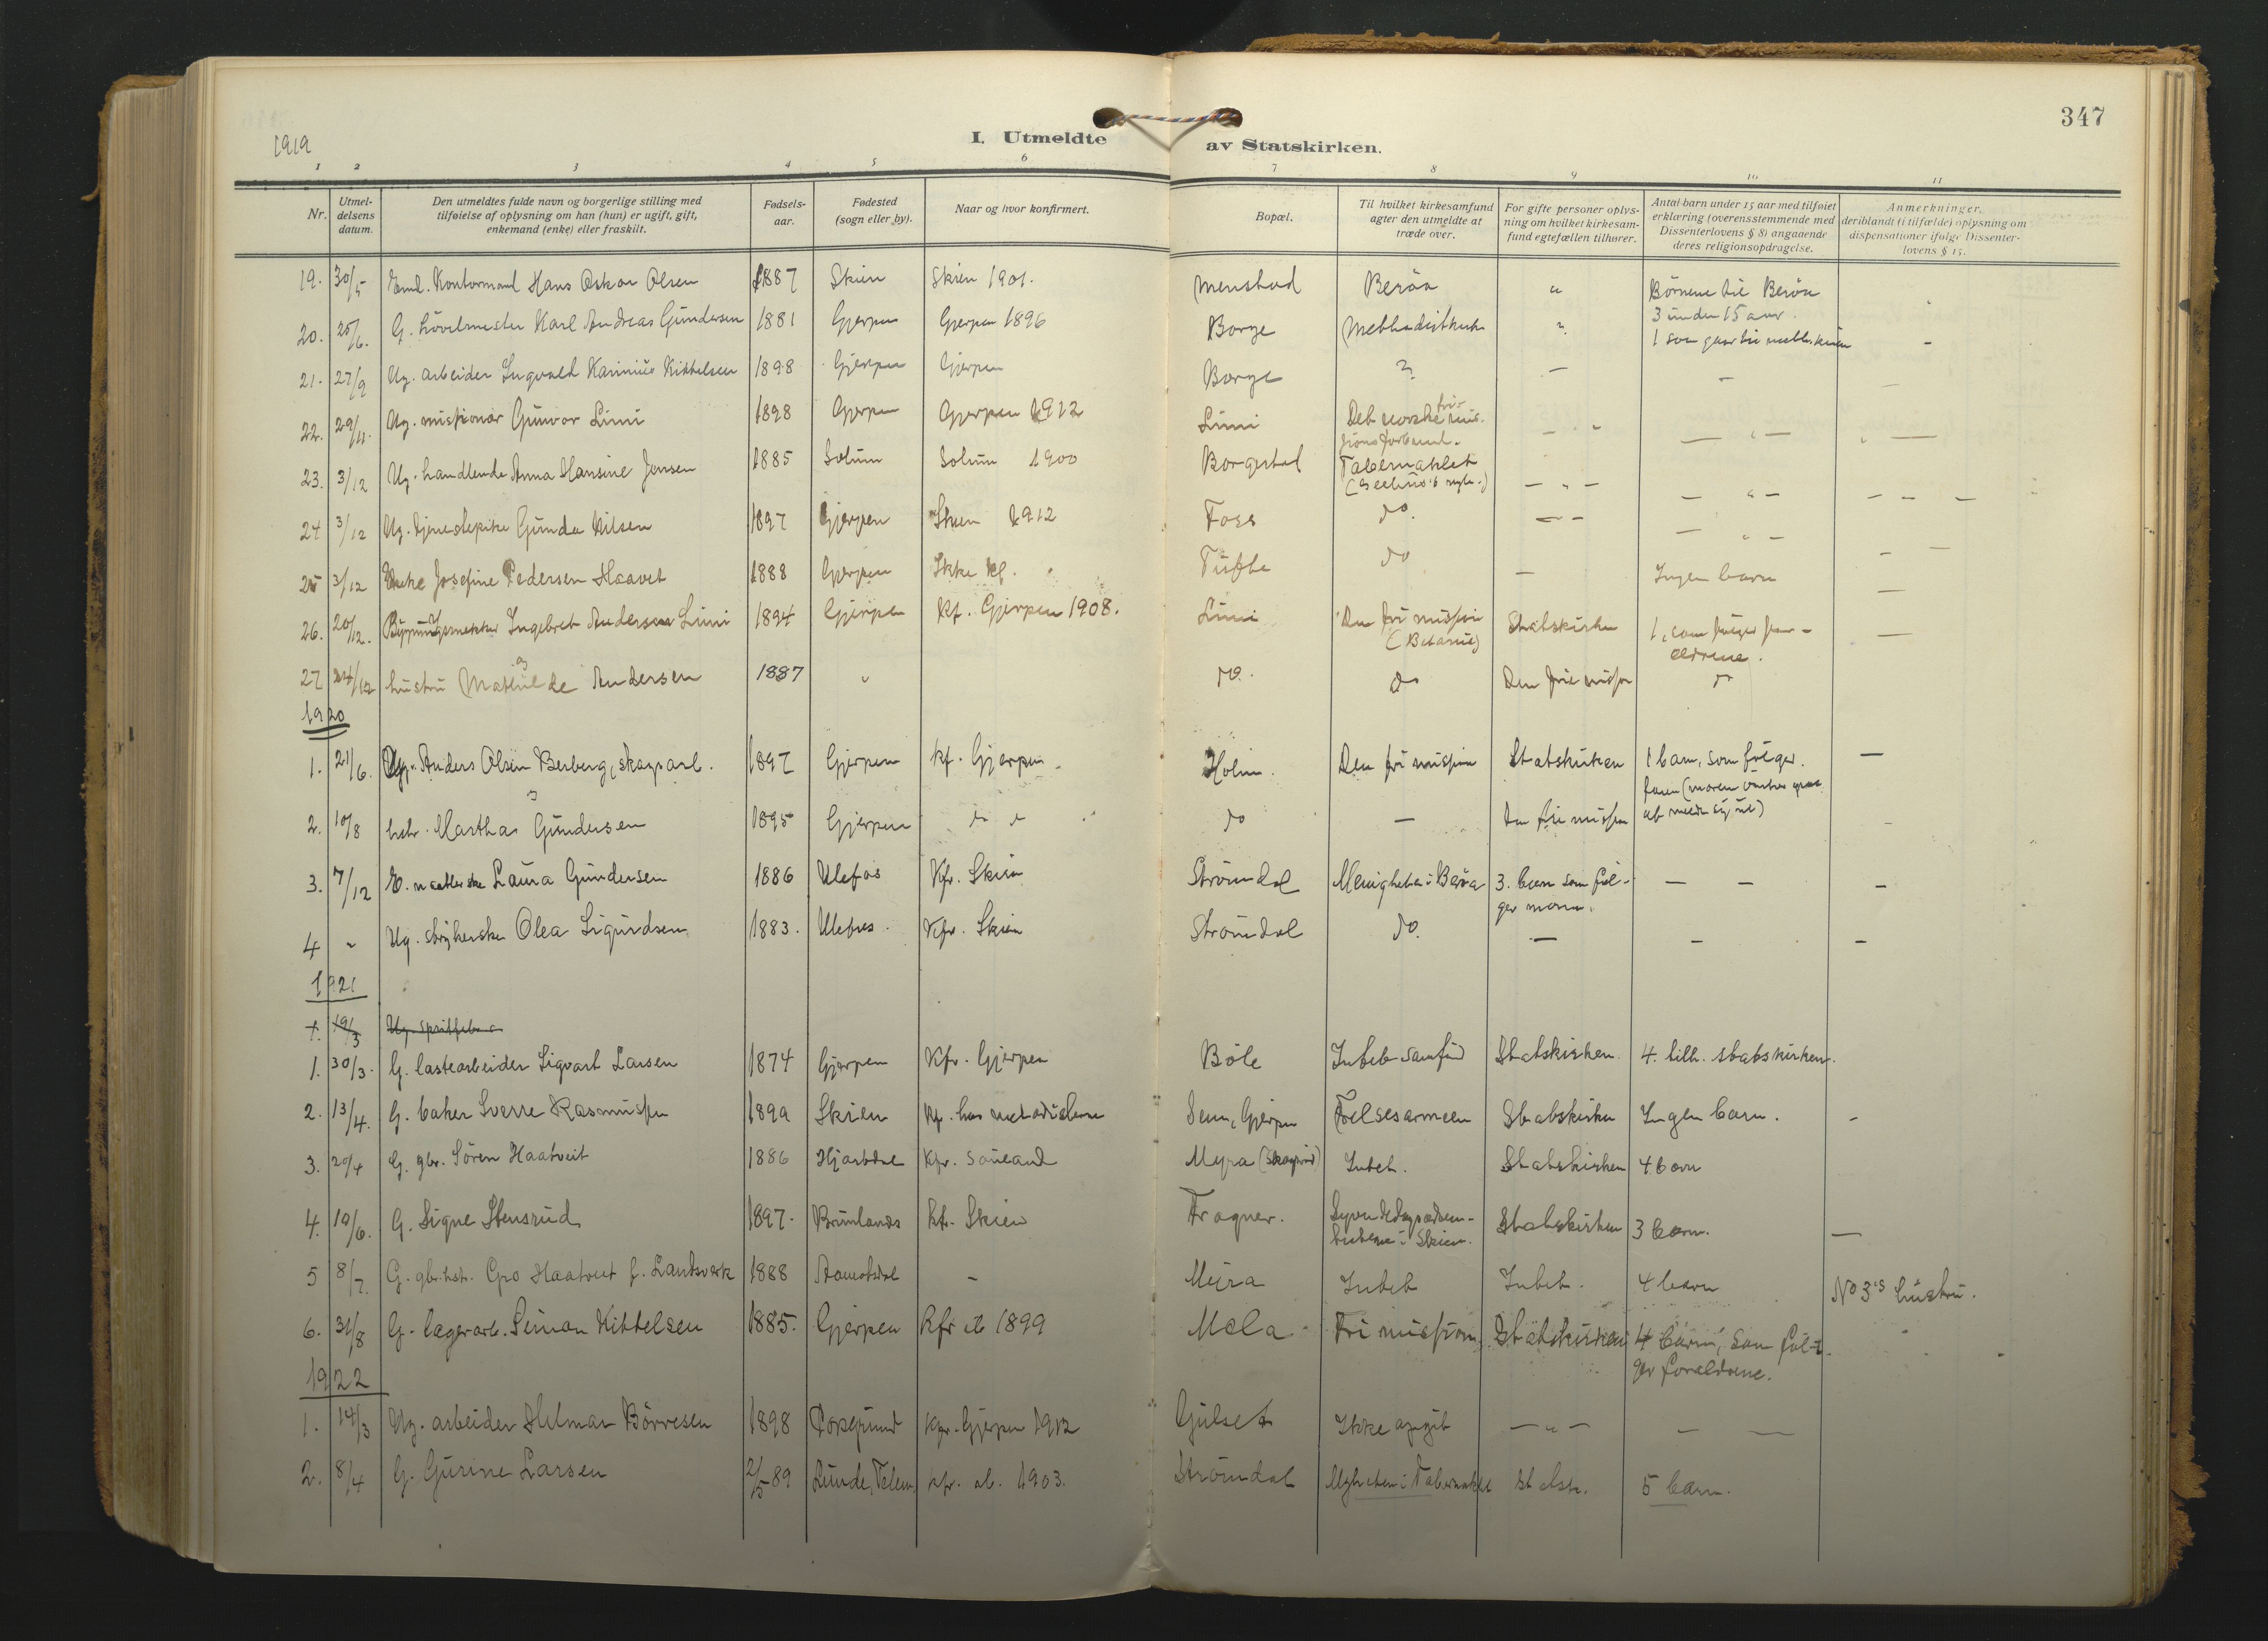 347
1919
I. Utmeldte av Statskirken.
1 2 3 4 5 6 7 8 9 10 11
Nr.
Utmel-
delsens
datum.
Den utmeldtes fulde navn og borgerlige stilling med
tilføielse af oplysning om han (hun) er ugift, gift,
enkemand (enke) eller fraskilt.
Fødsels-
aar.
Fødested
(sogn eller by).
Naar og hvor konfirmert.
Bopæl.
Til hvilket kirkesamfund
agter den utmeldte at
træde over.
For gifte personer oplys-
ning om hvilket kirkesam-
fund egtefællen tilhører.
Antal barn under 15 aar med tilføiet
erklæring (overensstemmende med
Dissenterlovens § 8) angaaende
deres religionsopdragelse.
Anmerkninger,
deriblandt (i tilfælde) oplysning om
dispensationer ifølge Dissenter-
lovens § 15.
19. 30/5 Kontormand Hans Oskar Olsen 1887 Skien Skien 1901. Menstad Berøa " Børnene til Berøa
3 under 15 aar.
20. 25/6. G. høvelmester Karl Andreas Gundersen 1881 Gjerpen Gjerpen 1896 Borge Methodistkirk 1 som gaar til -
21. 27/9 Ug. arbeider Ingvald Kittelsen 1898 Gjerpen Gjerpen Borge ? - - -
22. 29/11. Ug. missionær Gunvor Limi 1898 Gjerpen Gjerpen 1912 Limi Det norske fri mis-
sions forbund.
23. 3/12 Ug. handlende Anna Hansine Jensen 1885 Solum Solum 1900 Borgestad Tabernaklet
24 3/12 Ug. tjenestepike Gunda Nilsen 1897 Gjerpen Skien 1912 Foss do.
25 3/12 Enke Josefine Pedersen Haavet 1888 Gjerpen Ikke kf. Tufte do - Ingen barn -
26. 20/12. Ingebret Andersen Limi 1894 Gjerpen Kf. Gjerpen 1908. Limi Den fri mission
(Betania) Statskirken 1, som følger for-
ældrene. -
27 24/12 hustru Mathilde Andersen 1887 " do. do Den frie mission do
1920
1. 21/6. Anders Olsen Berberg, skogarb. 1897 Gjerpen kf. Gjerpen. Holm. Den fri mission Statskirken 1 barn, som følger
faren (moren -
2. 10/8 hstr. Martha Gundersen 1895 Gjerpen do - Den fri mission at melde sig ut)
3. 7/12 E. Laura Gundersen 1886 Ulefos Kfr. Skien Strømdal Menigheten i Berøa 3. barn som føl-
ger moren. - - -
4 " Ug. strykerske Olea Sigurdsen 1883. Ulefos. Kfr. Skien Strømdal do. - - -
1921
1. 19/3 Ug.
1. 30/3. G. lastearbeider Sigvart Larsen 1874 Gjerpen Kfr. Gjerpen Bøle Intet samfund Statskirken. 4. tilh. statskirken.
2. 13/4. G. baker Sverre Rasmussen Skien Kf. hos metodisterne Gjerpen Frelsesarmeen Statskirken Ingen barn. -
3. 20/4 G. gbr. Søren Haatveit 1886 Hjartdal Kfr. Sauland Myra Intet. Statskirken 4 barn
4. 10/6. G. Signe Stensrud 1897. Brunlanes kfr. Skien Frogner. Syvendedagsadven-
tisterne i Skien. Statskirken 3 barn. -
5 8/7. G. gbr.hst. Gro Haatveit f. Landsverk 1888 - Mura Intet Intet. 4 barn No 3's hustru.
6. 31/8 G. lagerarb. Simon Kittelsen 1885. Gjerpen Kfr 1899 Mæla Fri mission Statskirken 4 barn, som føl-
ger forældrene.
1922
1. 14/3 Ug. arbeider Hilmar Børresen 1898 Porsgrund Kfr. Gjerpen 1912 Gulset Ikke opgit - " - - -
2. 8/4 G. Gurine Larsen 2/5 89 Lunde, Telem. kfr. 1903. Strømdal Mgheten i Tabernaklet 5 barn.